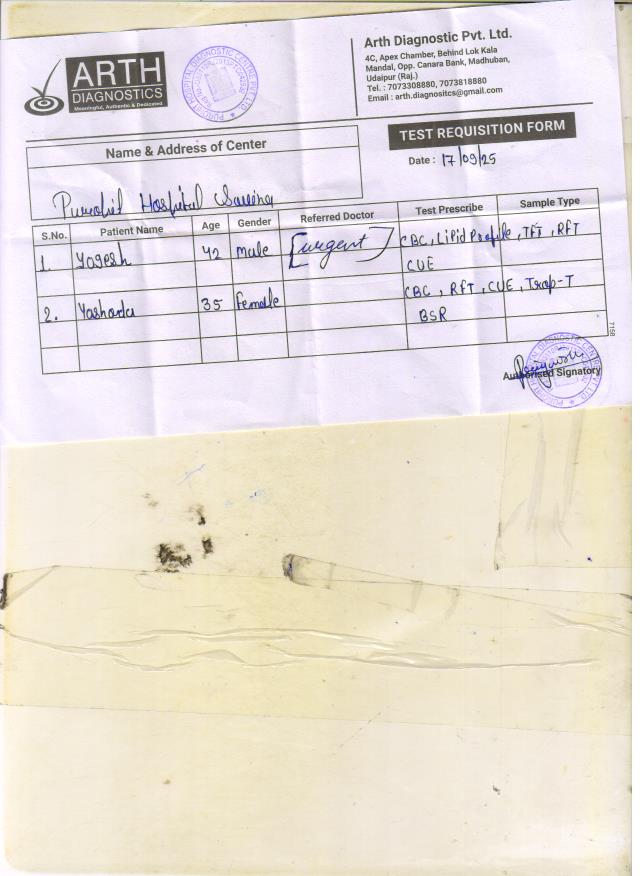 ARTH
DIAGNOSTICS
Meaningful, Authentic & Dedicated
Arth Diagnostic Pvt. Ltd.
4C, Apex Chamber, Behind Lok Kala
Mandal, Opp. Canara Bank, Madhuban,
Udaipur (Raj.)
Tel. : 7073308880, 7073818880
Email : arth.diagnositcs@gmail.com
TEST REQUISITION FORM
Date : 17/09/25
Name & Address of Center
Purohit Hospital
S.No. Patient Name Age Gender Referred Doctor Test Prescribe Sample Type
1. Yogesh 42 male [urgent] CBC, Lipid Profile, TFT, RFT
CUE
2. Yashoda 35 Female CBC, RFT, CUE, Trop-T
BSR
7158
Authorised Signatory